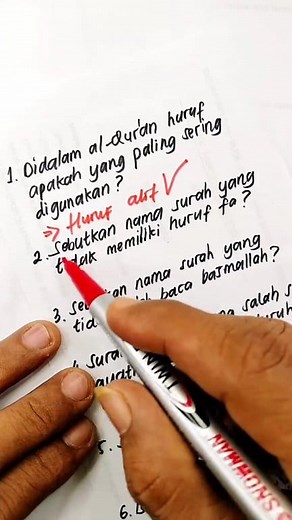 1. Didalam al-Qur'an huruf
apakah yang paling sering
digunakan?
⇒ Huruf alif ✓
2. Sebutkan nama surah yang
tidak memiliki huruf fa?
3. nama surah yang
baca basmallah?
4. salah s
5.
6.
SNOWMAN